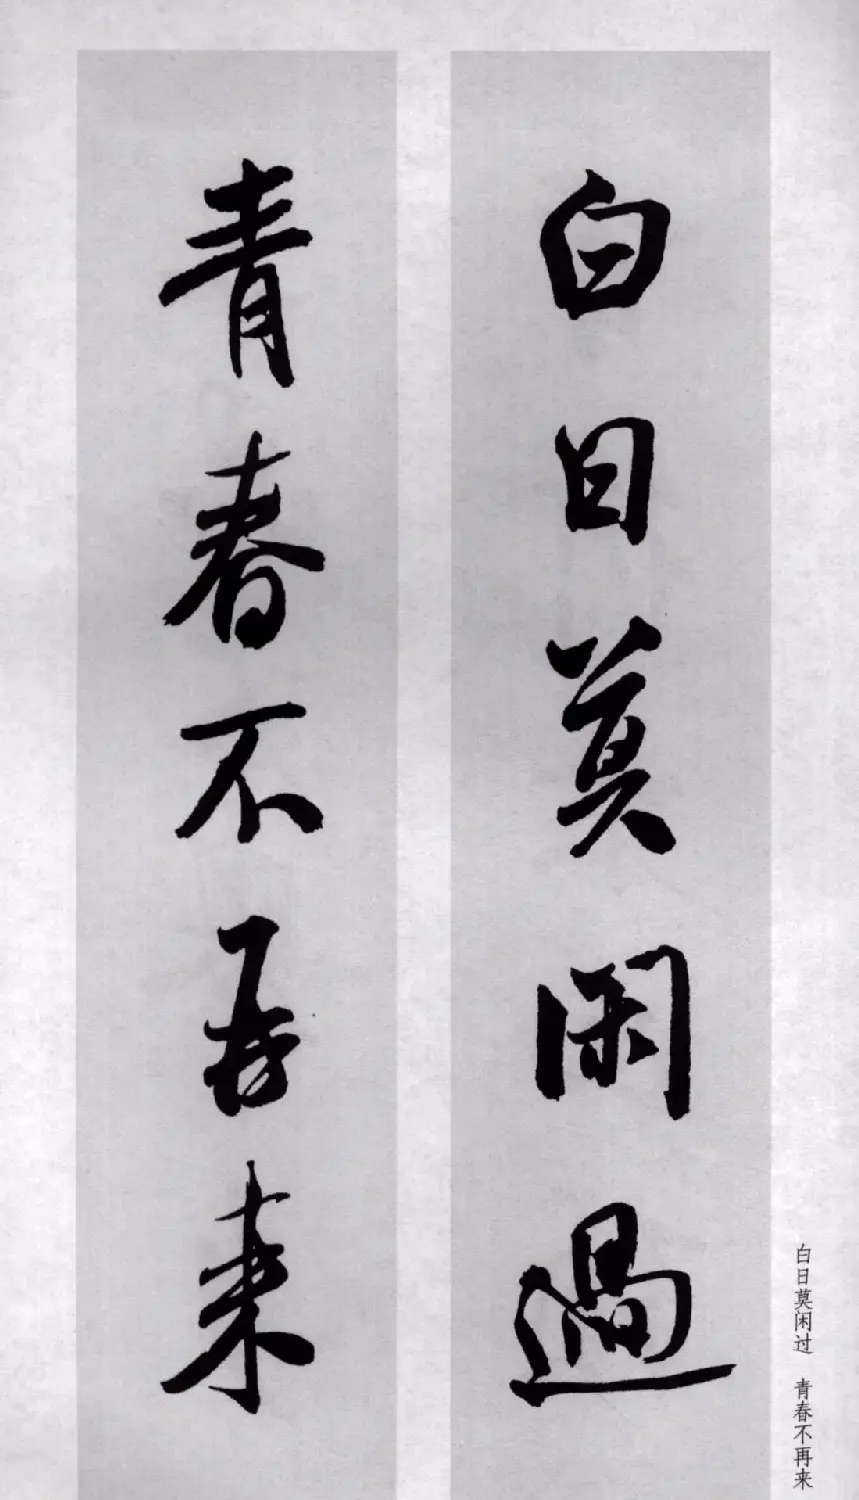 白日莫闲過
青春不再来
白日莫闲过 青春不再来